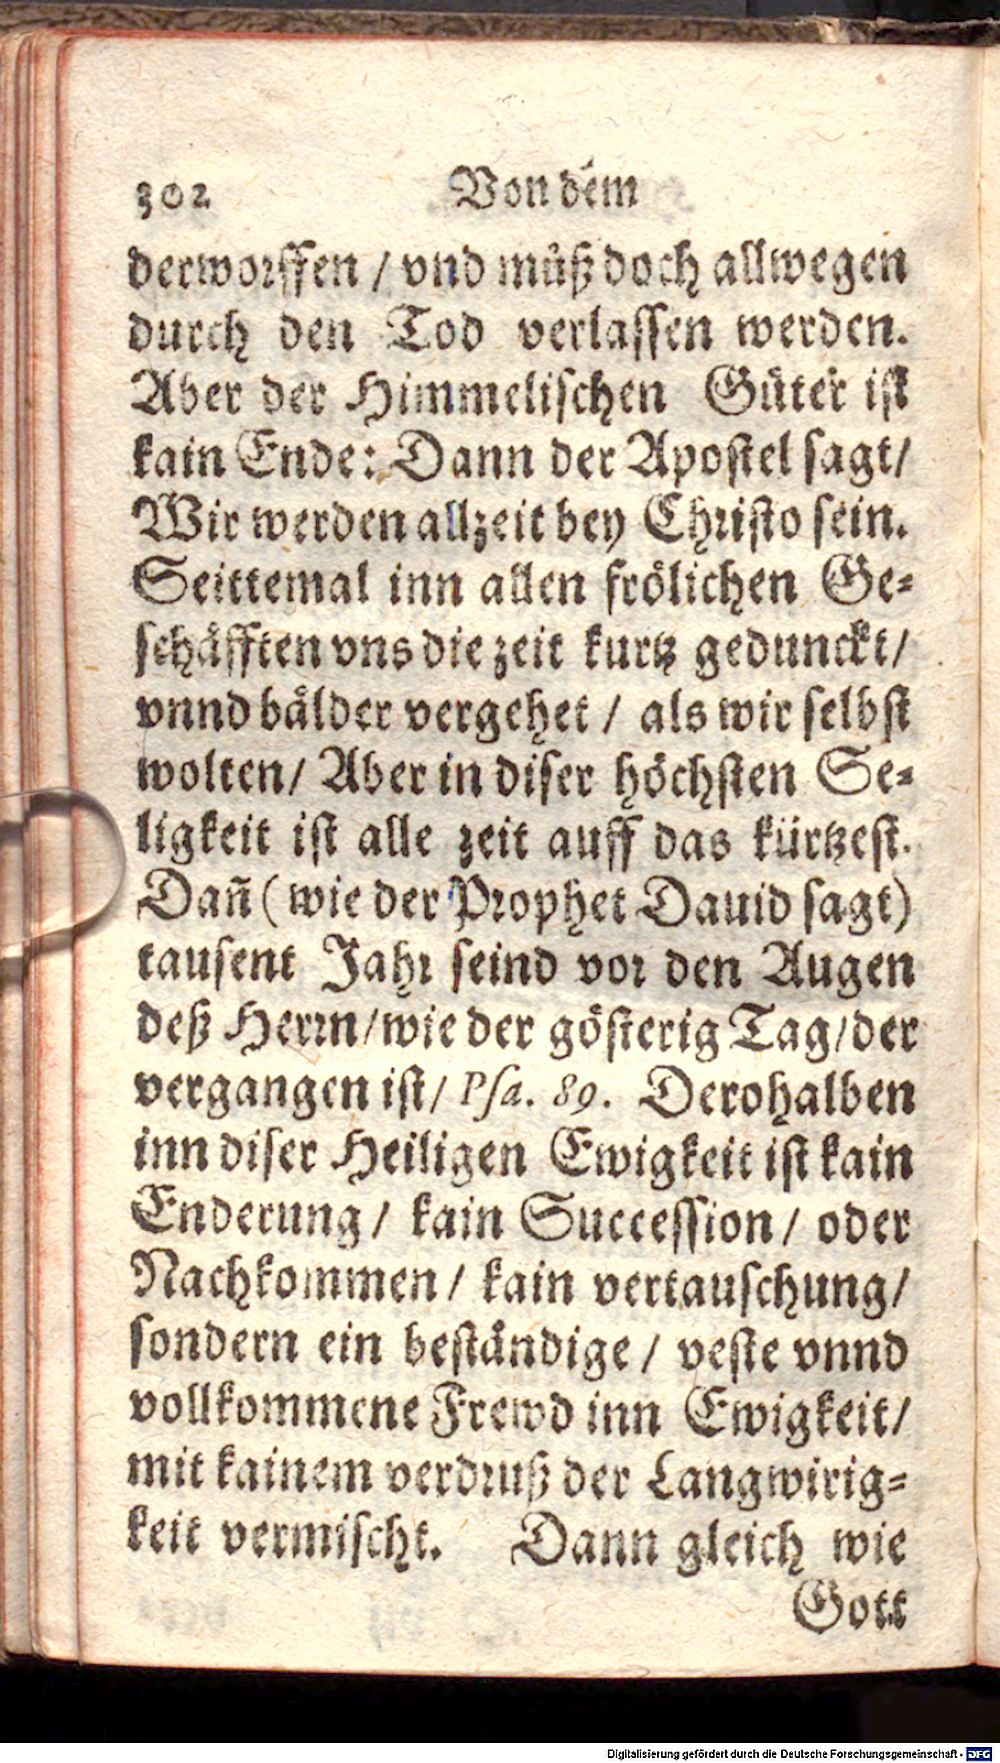 302 Von dem
derworffen / vnd můß doch allwegen
durch den Tod verlassen werden.
Aber der Himmelischen Güter ist
kain Ende: Dann der Apostel sagt/
Wir werden allzeit bey Christo sein.
Seittemal inn allen frölichen Ge-
schäfften vns die zeit kurtz gedunckt/
vnnd bälder vergehet / als wir selbst
wolten/ Aber in diser höchsten Se-
ligkeit ist alle zeit auff das kürtzest.
Dañ ( wie der Prophet Dauid sagt)
tausent Jahr seind vor den Augen
deß Herrn/wie der gösterig Tag/der
vergangen ist/ Psa. 89. Derohalben
inn diser Heiligen Ewigkeit ist kain
Enderung / kain Succession / oder
Nachkommen / kain vertauschung/
sondern ein beständige / veste vnnd
vollkommene Frewd inn Ewigkeit/
mit kainem verdruß der Langwirig-
keit vermischt. Dann gleich wie
Gott
Digitalisierung gefördert durch die Deutsche Forschungsgemeinschaft - DFG